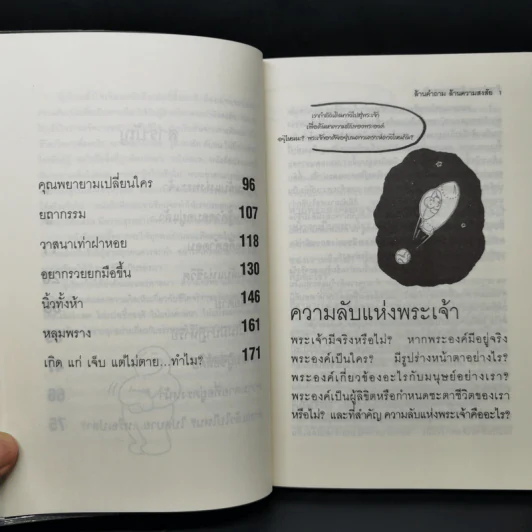 คุณพยายามเปลี่ยนใคร 96
ยถากรรม 107
วาสนาเท่าฝาหอย 118
อยากรวยยกมือขึ้น 130
นิ้วทั้งห้า 146
หลุมพราง 161
เกิด แก่ เจ็บ แต่ไม่ตาย...ทำไม? 171
ล้านคำถาม ล้านความสงสัย 1
ความลับแห่งพระเจ้า
พระเจ้ามีจริงหรือไม่? หากพระองค์มีอยู่จริง
พระองค์เป็นใคร? มีรูปร่างหน้าตาอย่างไร?
พระองค์เกี่ยวข้องอะไรกับมนุษย์อย่างเรา?
พระองค์เป็นผู้ลิขิตหรือกำหนดชะตาชีวิตของเรา
หรือไม่? และที่สำคัญ ความลับแห่งพระเจ้าคืออะไร?